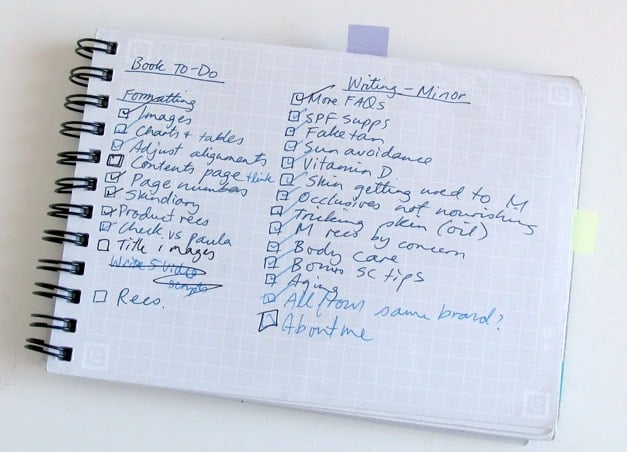 Book To-Do
Formatting
Images
Charts + tables
Adjust alignments
Contents page + link
Page numbers
Skin diary
Product recs
Check vs paula
Title images
Write 5 video
scripts
Recs.
Writing - Minor
More FAQs
SPF supps
Fake tan
Sun avoidance
Vitamin D
Skin getting used to M
Occlusives not nourishing
Tricking skin (oil)
M recs by concern
Body care
Bonus SC tips
Aging
All from same brand?
About me